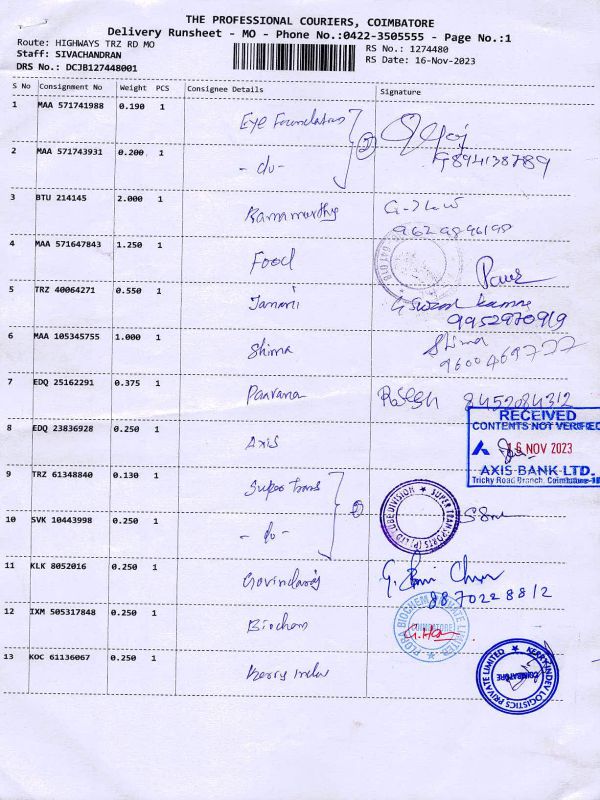 THE PROFESSIONAL COURIERS, COIMBATORE
Delivery Runsheet - MO - Phone No.:0422-3505555 - Page No.:1
Route: HIGHWAYS TRZ RD MO RS No.: 1274480
Staff: SIVACHANDRAN RS Date: 16-Nov-2023
DRS No.: DCJB127448001
S No Consignment No Weight PCS Consignee Details Signature
1 MAA 571741988 0.190 1 Eye Foundation
2 MAA 571743931 0.200 1 - do - 9894138789
3 BTU 214145 2.000 1 Ramamurthy
9629896198
4 MAA 571647843 1.250 1 Food
5 TRZ 40064271 0.550 1 Janani
9952970919
6 MAA 105345755 1.000 1 Shima Shima
9600469777
7 EDQ 25162291 0.375 1 8452084312
8 EDQ 23836928 0.250 1 Axis
RECEIVED
CONTENTS NOT VERIFIED
16 NOV 2023
AXIS BANK LTD.
Tricky Road Branch, Coimbatore-18
9 TRZ 61348840 0.130 1 Super Trans
SUPER TRANSPORTS (P) LTD CUBE DIVISION
10 SVK 10443998 0.250 1 - do -
11 KLK 8052016 0.250 1 Govindaraj
8870228812
12 IXM 505317848 0.250 1 Biochem
FLORA BIOCHEM PRIVATE LIMITED
COIMBATORE
13 KOC 61136067 0.250 1 Kerry Indev
KERRYINDEV LOGISTICS PRIVATE LIMITED
COIMBATORE